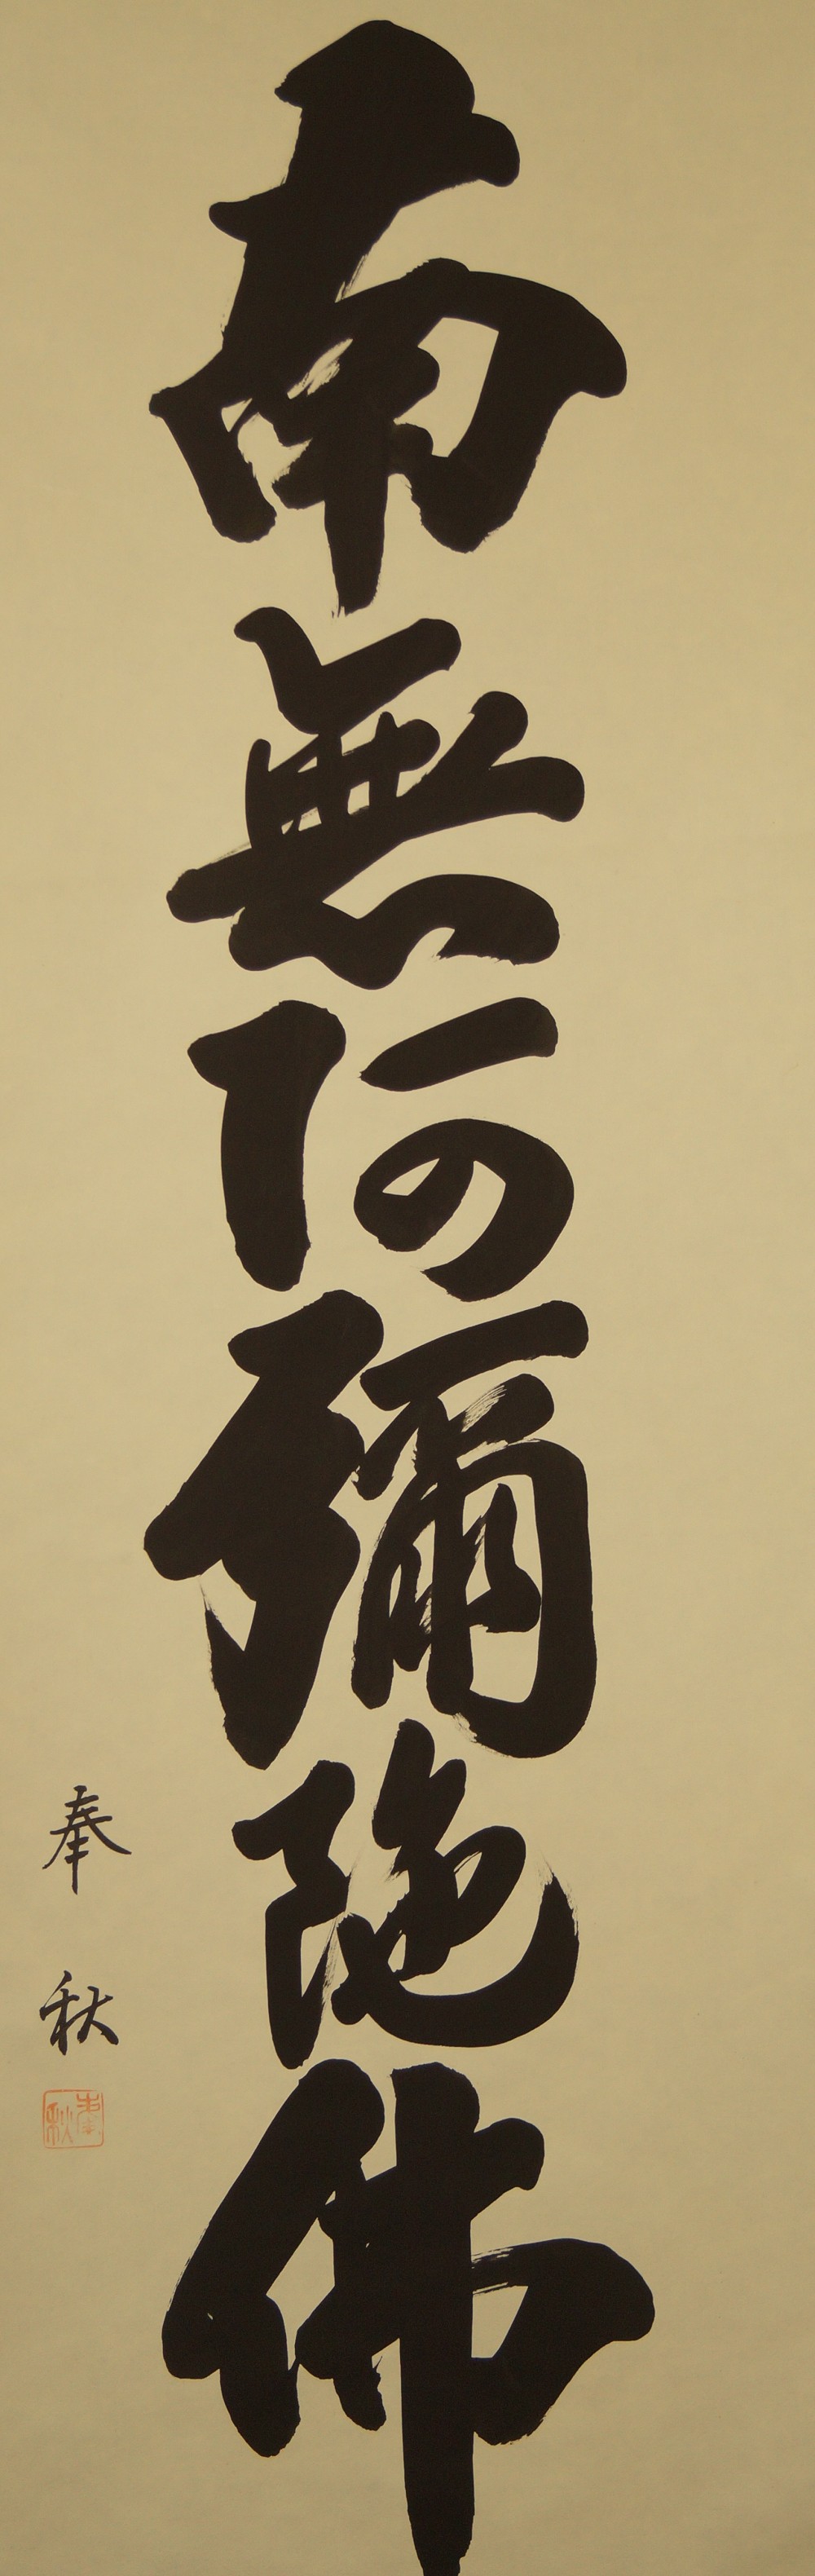 南無阿彌陀佛
奉秋
奉秋